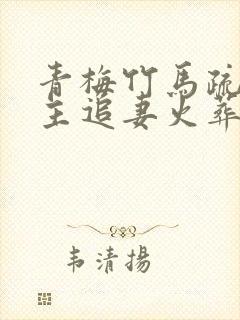 青梅竹馬疏
主追妻火葬
韦清揚